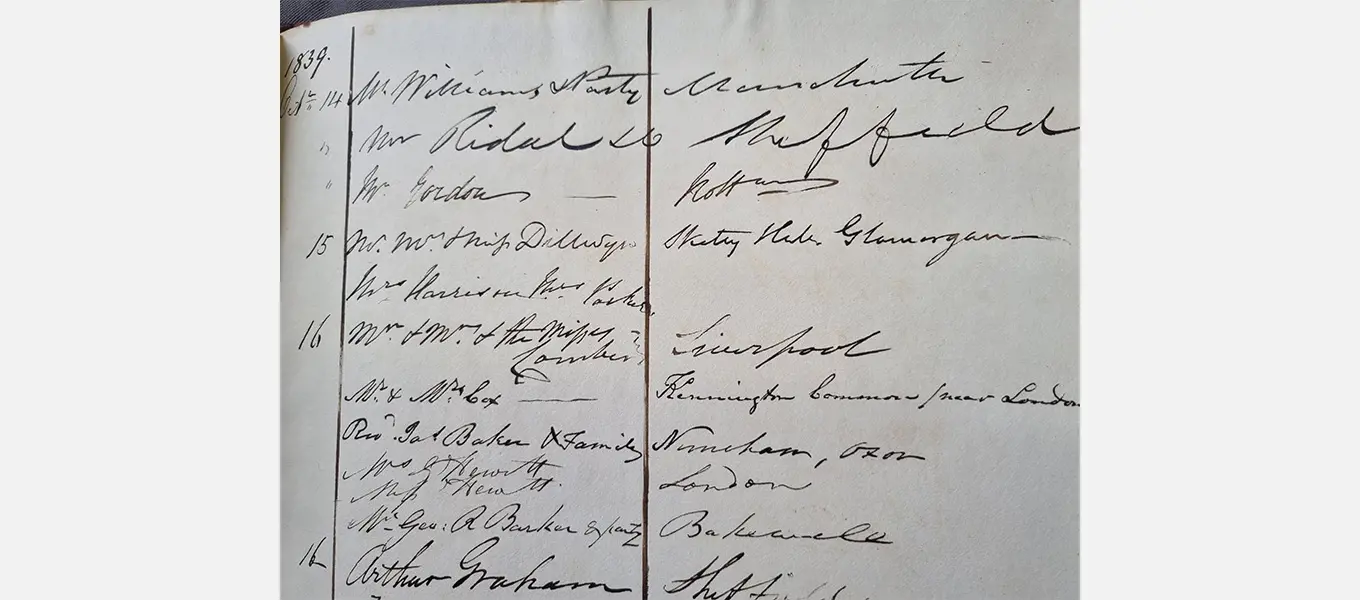 1839.
Octr 14 Mr Williams & Party Manchester
" Mr Ridal Sheffield
" Mr Gordon — Notts
15 Mr. Mrs & Miss Dillwyn Sketty Glamorgan —
Mrs Harrison Mrs Parker
16 Mr & Mrs & the Misses Liverpool
Mr & Mrs Cox — Kennington Common / near London
Revd Jas Baker & Family Nuneham, Oxon
Mrs Hewitt London
Miss Hewitt
Mr Geo: R Barker & party Bakewell
16 Arthur Graham Sheffield